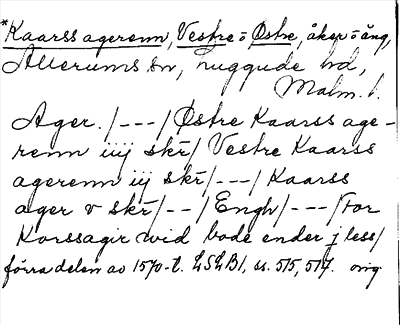 *Kaarss agerenn, Vestre o Østre, åker o äng,
Allerums sn, Luggude hd,
Malm. l.
Ager. /---/ Østre Kaarss age-
renn iiij skr̄/ Vestre Kaarss
agerenn iij skr̄/---/ Kaarss
ager v skr̄/--/ Engh/---/ For
Korssagir wid bode ender j less/
förra delen av 1570-t. LSLB1, ss. 515, 517. orig